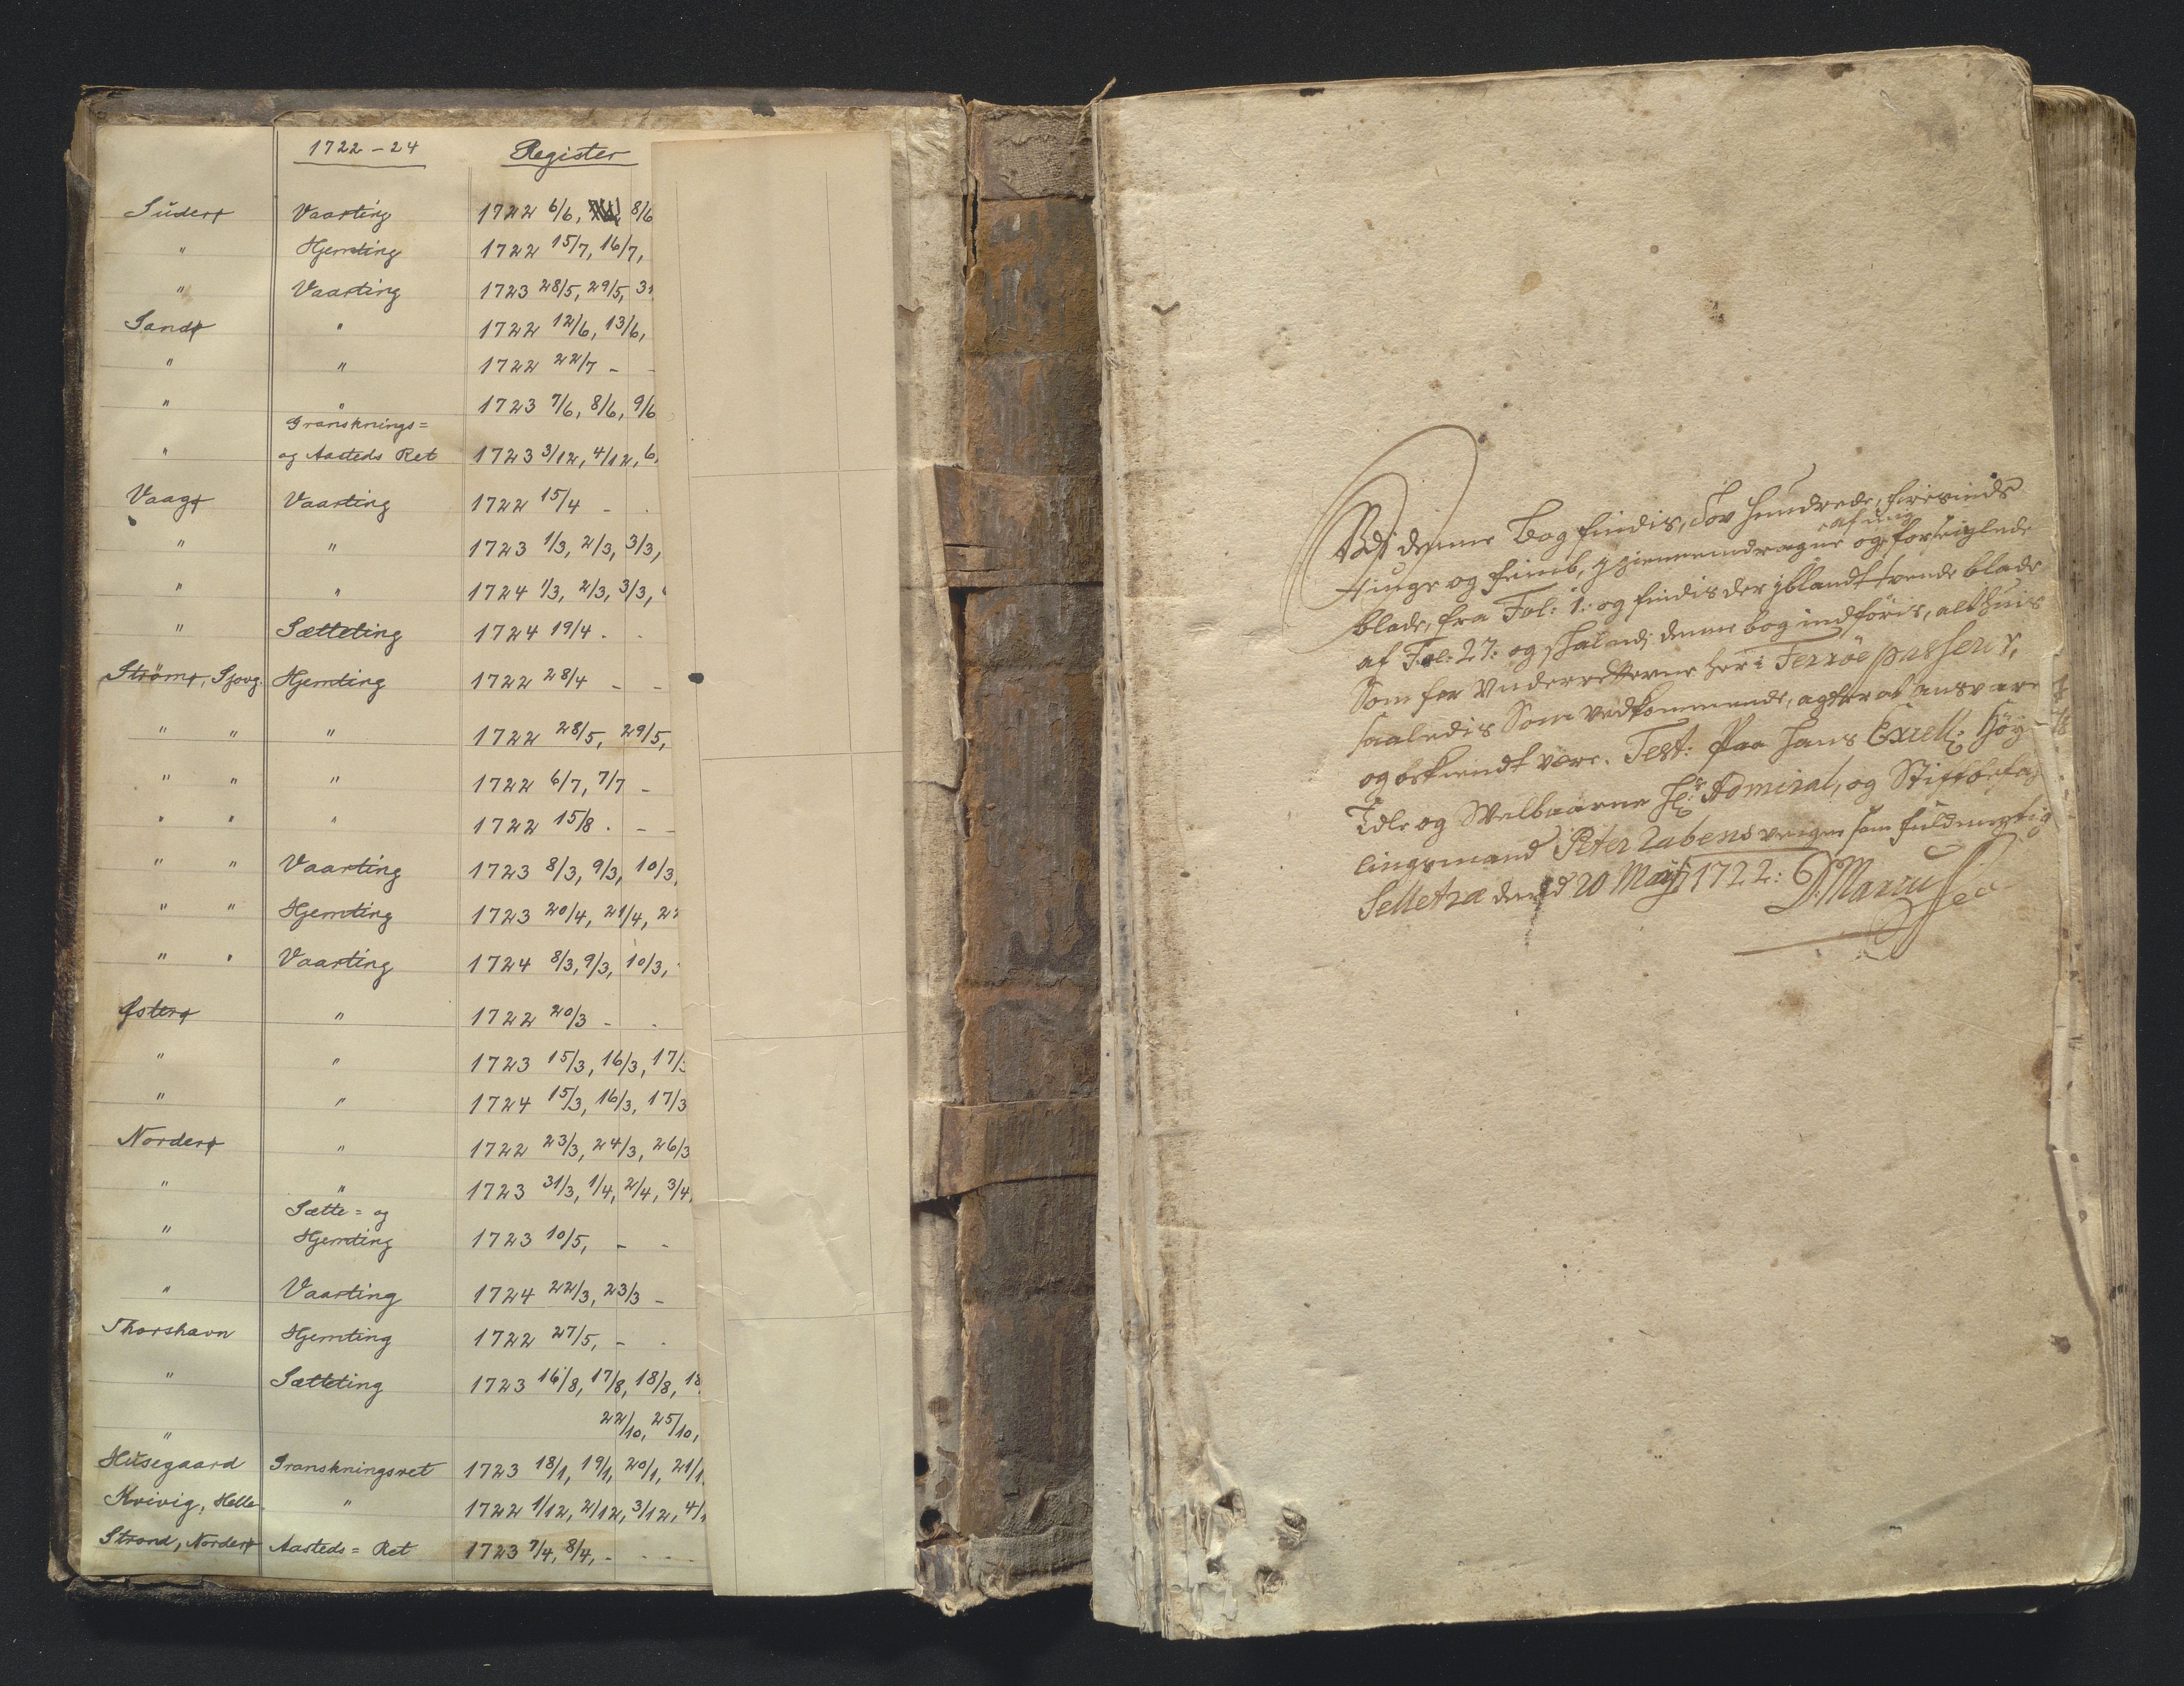 1722 – 24 Register
Suderø Vaarting 1722 6/6, 8/6
" Hjemting 1722 15/7, 16/7,
" Vaarting 1723 28/5, 29/5,
Sandø " 1722 12/6, 13/6,
" " 1722 22/7 -
" " 1723 7/6, 8/6, 9/6
Gransknings=
" og Aasteds Ret 1723 3/12, 4/12, 6
Vaagø Vaarting 1722 15/4 -
" " 1723 1/3, 2/3, 3/3,
" " 1724 1/3, 2/3, 3/3,
" Sætteting 1724 19/4 -
Strømø, Sjovg. Hjemting 1722 28/4 - -
" " " 1722 28/5, 29/5,
" " " 1722 6/7, 7/7 -
" " " 1722 15/8 . - -
" " Vaarting 1723 8/3, 9/3, 10/3,
" " Hjemting 1723 20/4, 21/4, 22
" " Vaarting 1724 8/3, 9/3, 10/3,
Østerø " 1722 20/3 - -
" " 1723 15/3, 16/3, 17/3
" " 1724 15/3, 16/3, 17/3
Norderø " 1722 23/3, 24/3, 26/3
" " 1723 31/3, 1/4, 2/4, 3/4,
Sætte= og
" Hjemting 1723 10/5, - -
" Vaarting 1724 22/3, 23/3 -
Thorshavn Hjemting 1722 27/5, - -
" Sætteting 1723 16/8, 17/8, 18/8, 18
" 22/10, 25/10,
Husegaard Granskningsret 1723 18/1, 19/1, 20/1, 21/1
Kvivig, Helle " 1722 1/12, 2/12, 3/12, 4/1
Strand, Norderø Aasteds= Ret 1723 7/4, 8/4, - - - -
Udj denne Bog findis, Tov hundrede, firesinds
af mig
tiuge og femb, igiennemdragne og forseiglede
blade, fra Fol: 1: og findis der iblandt tvende blade
af Fol: 27: og skal udj denne bog indføris, alt huis
Som for Underretterne her i Ferröe passerer,
saaledis Som vedkommende, agter at ansvare
og bekiendt være. Test: Paa Hans Excell: Höy
Edle og Welbaarne Hr: Admiral, og Stiftbefa
lingsmand Peter Rabens veigne som fuldmegtig
Selletræ dend 20 Maÿ 1722: